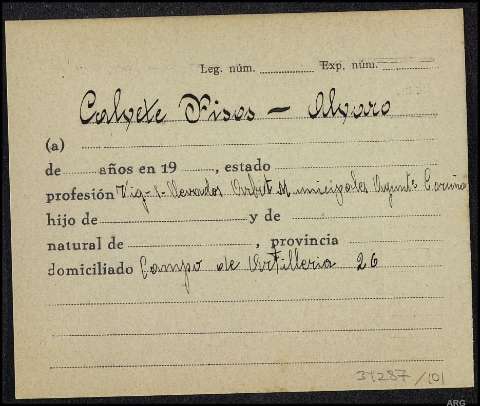 Leg. núm. Exp. núm.
Calvete Pisos - Alvaro
(a)
de años en 19 , estado
profesión Vig- Arbit Municipales Ayunt° Coruña
hijo de y de
natural de , provincia
domiciliado Campo de Artilleria 26
31287/101
ARG